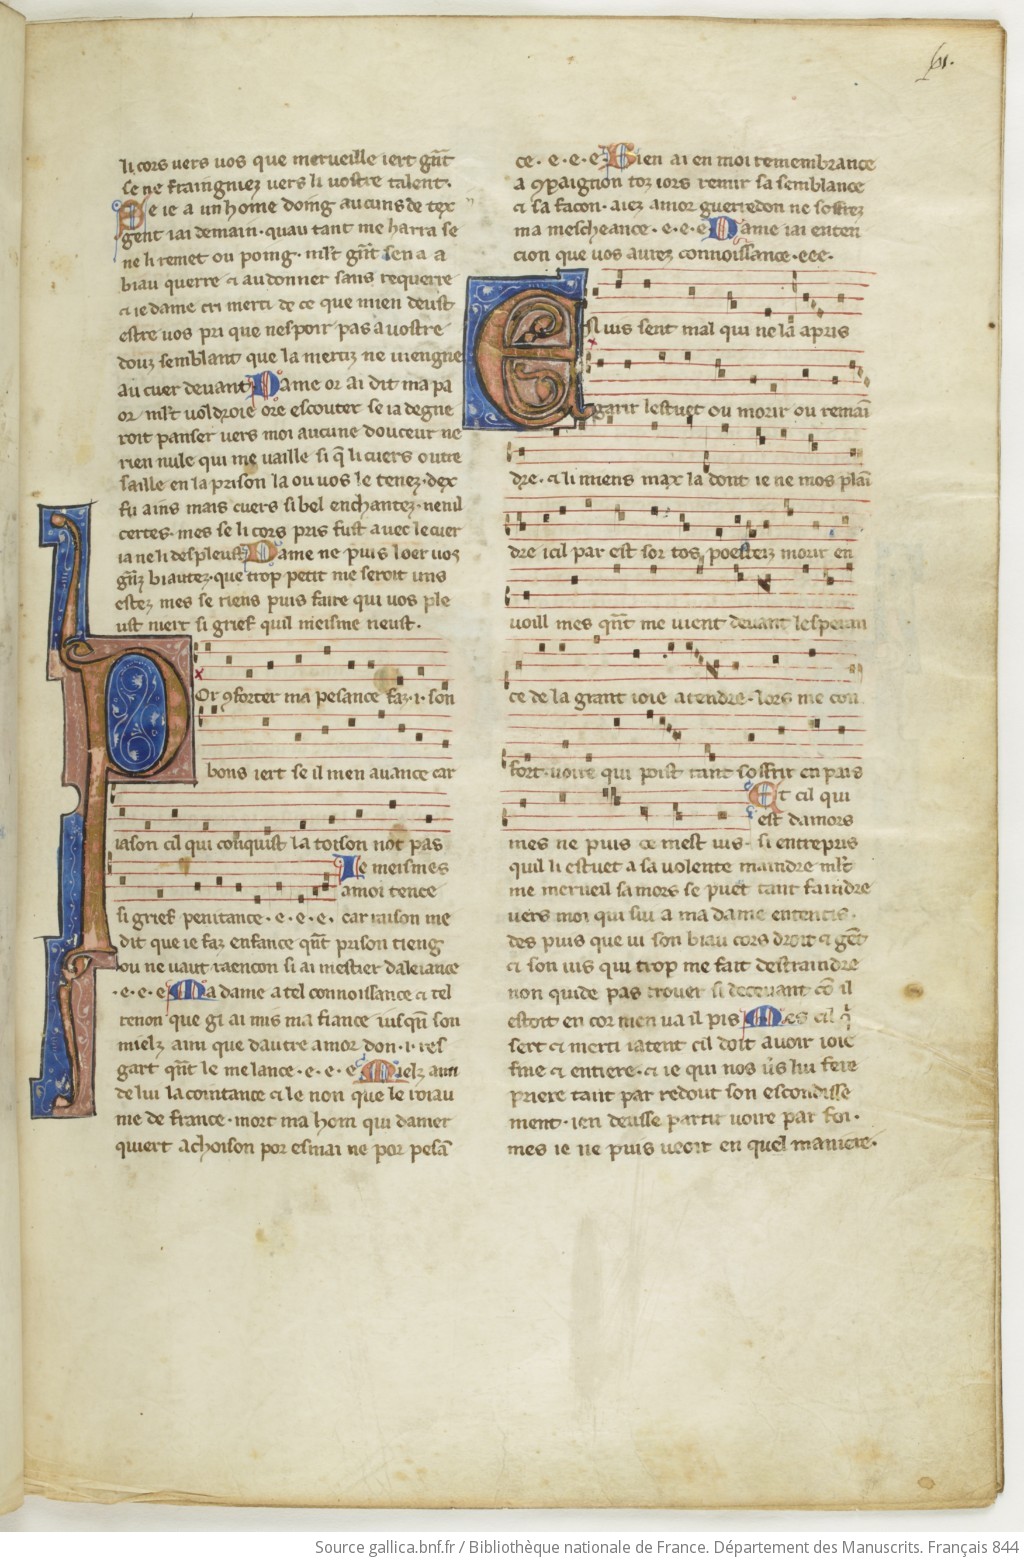 61.
li cors uers uos que merueille iert gñt
se ne fraingniez uers li uostre talent.
Se ie a un home doing aucuns de tex
gent iai demain. quau tant me harra se
ne li remet ou poing. ml't gñt sen a a
biau querre ⁊ au donner sans requerre
⁊ ie dame cri merci de ce que mien deust
estre uos pri que nespoir pas a uostre
douz semblant que la merciz ne uiengne
au cuer deuant Dame or ai dit ma pa
or ml't uoldroie ore escouter se ia degne
roit panser uers moi aucune douceur ne
rien nule qui me uaille si q̃ li cuers outre
saille en la prison la ou uos le tenez. dex
fu ains mais cuers si bel enchantez. nenil
certes. mes se li cors pris fust auec le cuer
ia ne li despleust Dame ne puis loer uoz
gñz biautez. que trop petit me seroit uns
estez mes se riens puis faire qui uos ple
ust niert si grief quil meisme neust.
Por ꝯforter ma pesance faz .i. son
bons iert se il men auance car
iason cil qui conquist la toison not pas
Ie meismes
amoi tence
si grief penitance. e. e. e. car raison me
dit que ie faz enfance qñt prison tieng
ou ne uaut raencon si ai mestier daleiance
.e.e.e Ma dame a tel connoissance ⁊ tel
renon que gi ai mis ma fiance iusqũ son
mielz aim que dautre amor don .i. res
gart qñt le me lance. e. e. e Mielz aim
de lui la cointance ⁊ le non que le roiau
me de france. mort ma hom qui damer
quiert achoison por esmai ne por pesã
ce. e. e. e Bien ai en moi remembrance
a ꝯpaignon toz iors remir sa semblance
⁊ sa facon. aiez amor guerredon ne soffrez
ma mescheance. e. e. e Dame iai enten
cion que uos aurez connoissance. eee.
Cil uis sent mal qui ne la apris
garir lestuet ou morir ou remai
dre. ⁊ li miens max la dont ie ne mos plai
dre icil par est sor tos poesteiz morir en
uoill mes qñt me uient deuant lesperan
ce de la grant ioie atendre. lors me con
fort. uoire qui poist tant soffrir en pais
Et cil qui
est damors
mes ne puis ce mest uis. si entrepris
quil li estuet a sa uolente maindre ml't
me merueil samors se puet tant faindre
uers moi qui sui a ma dame ententis.
des puis que ui son biau cors droit ⁊ gẽt
⁊ son uis qui trop me fait destraindre
non quide pas trouer si deceuant cõ il
estoit en cor men ua il pis Mes cil q̃
sert ⁊ merci iatent cil doit auoir ioie
fine ⁊ entiere. ⁊ ie qui nos ũs lui fere
priere tant par redout son escondisse
ment. ien deusse partir uoire par foi.
mes ie ne puis ueoir en quel maniere.
Source gallica.bnf.fr / Bibliothèque nationale de France. Département des Manuscrits. Français 844